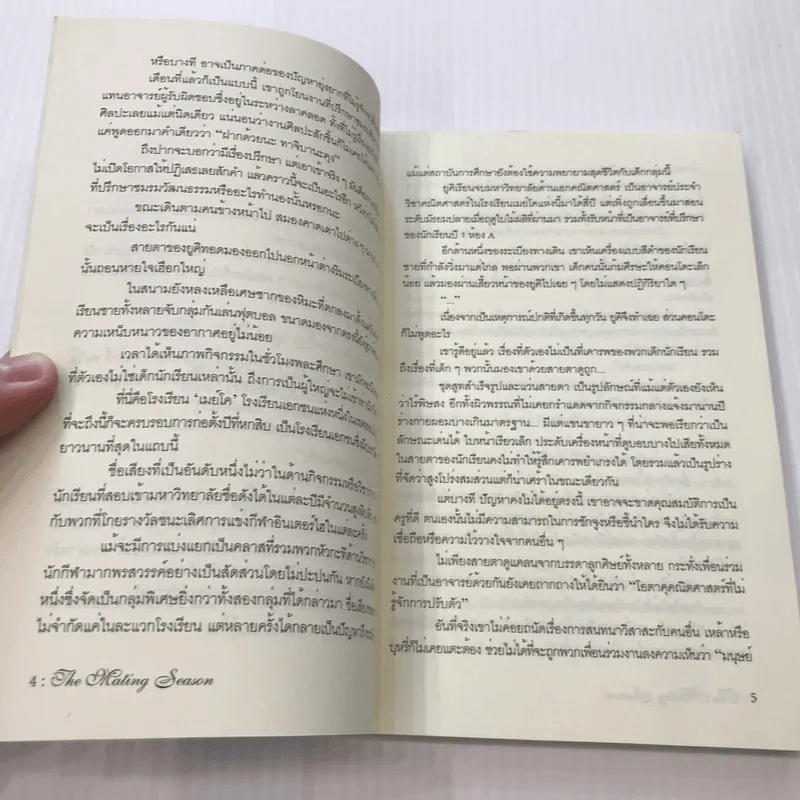 หรือบางที อาจเป็นภาคต่อของปัญหายุ่งยากที่ไม่รู้
เดือนที่แล้วก็เป็นแบบนี้ เขาถูกโยนงานที่ปรึกษาชมรม
แทนอาจารย์ผู้รับผิดชอบซึ่งอยู่ในระหว่างลาคลอด ทั้งที่ไม่รู้เรื่อง
ศิลปะเลยแม้แต่นิดเดียว แน่นอนว่างานศิลปะสักชิ้นก็ไม่เคย
แค่พูดออกมาคำเดียวว่า “ฝากด้วยนะ ทาจิบานะคุง”
ถึงปากจะบอกว่ามีเรื่องปรึกษา แต่เอาเข้าจริง ๆ
ไม่เปิดโอกาสให้ปฏิเสธเลยสักคำ แล้วคราวนี้จะเป็นอะไรอีก
ที่ปรึกษาชมรมวัฒนธรรมหรืออะไรทำนองนั้นหรอกนะ
ขณะเดินตามคนข้างหน้าไป สมองคาดเดาไปต่าง ๆ
จะเป็นเรื่องอะไรกันแน่
สายตาของยูคิทอดมองออกไปนอกหน้าต่างริมระเบียง
นั้นถอนหายใจเฮือกใหญ่
ในสนามยังหลงเหลือเศษซากของหิมะที่ตกลงมาตั้งแต่
เรียนชายทั้งหลายจับกลุ่มกันเล่นฟุตบอล ขนาดมองจากตรงนี้ยัง
ความเหน็บหนาวของอากาศอยู่ไม่น้อย
เวลาได้เห็นภาพกิจกรรมในชั่วโมงพละศึกษา เขามักจะ
ที่ตัวเองไม่ใช่เด็กนักเรียนเหล่านั้น ถึงการเป็นผู้ใหญ่จะไม่
ที่นี่คือโรงเรียน ‘เมยโค’ โรงเรียนเอกชนแห่งหนึ่งใน
ที่จะถึงนี้ก็จะครบรอบการก่อตั้งปีที่หกสิบ เป็นโรงเรียนเอกชนซึ่งมี
ยาวนานที่สุดในแถบนี้
ชื่อเสียงที่เป็นอันดับหนึ่งไม่ว่าในด้านกิจกรรมหรือวิชาการ
นักเรียนที่สอบเข้ามหาวิทยาลัยชื่อดังได้ในแต่ละปีมีจำนวนสูง
กับพวกที่โกยรางวัลชนะเลิศการแข่งกีฬาอินเตอร์ไฮในแต่ละครั้ง
แม้จะมีการแบ่งแยกเป็นคลาสที่รวมพวกหัวกะทิด้านวิชาการ
นักกีฬามากพรสวรรค์อย่างเป็นสัดส่วนโดยไม่ปะปนกัน หากยังมี
หนึ่งซึ่งจัดเป็นกลุ่มพิเศษยิ่งกว่าทั้งสองกลุ่มที่ได้กล่าวมา ชื่อเสียง
ไม่จำกัดแค่ในละแวกโรงเรียน แต่หลายครั้งได้กลายเป็นปัญหา
4 : The Mating Season
แม้แต่สถาบันการศึกษายังต้องใช้ความพยายามสุดชีวิตกับเด็กกลุ่มนี้
ยูคิเรียนจบมหาวิทยาลัยด้านเอกคณิตศาสตร์ เป็นอาจารย์ประจำ
วิชาคณิตศาสตร์ในโรงเรียนเมยโคแห่งนี้มาได้สี่ปี แต่เพิ่งถูกเลื่อนขึ้นมาสอน
ระดับมัธยมปลายเมื่อฤดูใบไม้ผลิที่ผ่านมา รวมทั้งรับหน้าที่เป็นอาจารย์ที่ปรึกษา
ของนักเรียนปี 1 ห้อง A
อีกด้านหนึ่งของระเบียงทางเดิน เขาเห็นเครื่องแบบสีดำของนักเรียน
ชายที่กำลังวิ่งมาแต่ไกล พอผ่านพวกเขา เด็กคนนั้นก้มศีรษะให้คอนโดะเล็ก
น้อย แล้วมองผ่านเสี้ยวหน้าของยูคิไปเฉย ๆ โดยไม่แสดงปฏิกิริยาใด ๆ
“...”
เนื่องจากเป็นเหตุการณ์ปกติที่เกิดขึ้นทุกวัน ยูคิจึงทำเฉย ส่วนคอนโดะ
ก็ไม่พูดอะไร
เขารู้ดีอยู่แล้ว เรื่องที่ตัวเองไม่เป็นที่เคารพของพวกเด็กนักเรียน รวม
ถึงเรื่องที่เด็ก ๆ พวกนั้นมองเขาด้วยสายตาดูถูก...
ชุดสูทสำเร็จรูปและแว่นสายตา เป็นรูปลักษณ์ที่แม้แต่ตัวเองยังเห็น
ว่าไร้พิษสง อีกทั้งผิวพรรณที่ไม่เคยกร้านแดดจากกิจกรรมกลางแจ้งมานานปี
ร่างกายผอมบางเกินมาตรฐาน... มีแต่แขนขายาว ๆ ที่น่าจะพอเรียกว่าเป็น
ลักษณะเด่นได้ ใบหน้าเรียวเล็ก ประดับเครื่องหน้าที่ดูบอบบางไปเสียทั้งหมด
ในสายตาของนักเรียนคงไม่ทำให้รู้สึกเคารพยำเกรงได้ โดยรวมแล้วเป็นรูปร่าง
ที่จัดว่าสูงโปร่งสมส่วนแต่ก็น่าเศร้าในขณะเดียวกัน
แต่บางที ปัญหาคงไม่ได้อยู่ตรงนี้ เขาอาจจะขาดคุณสมบัติการเป็น
ครูที่ดี ตนเองนั้นไม่มีความสามารถในการชักจูงหรือชี้นำใคร จึงไม่ได้รับความ
เชื่อถือหรือความไว้วางใจจากคนอื่น ๆ
ไม่เพียงสายตาดูแคลนจากบรรดาลูกศิษย์ทั้งหลาย กระทั่งเพื่อนร่วม
งานที่เป็นอาจารย์ด้วยกันยังเคยถากถางให้ได้ยินว่า “โอตาคุคณิตศาสตร์ที่ไม่
รู้จักการปรับตัว”
อันที่จริงเขาไม่ค่อยถนัดเรื่องการสนทนาวิสาสะกับคนอื่น เหล้าหรือ
บุหรี่ก็ไม่เคยแตะต้อง ช่วยไม่ได้ที่จะถูกพวกเพื่อนร่วมงานลงความเห็นว่า “มนุษย์
5